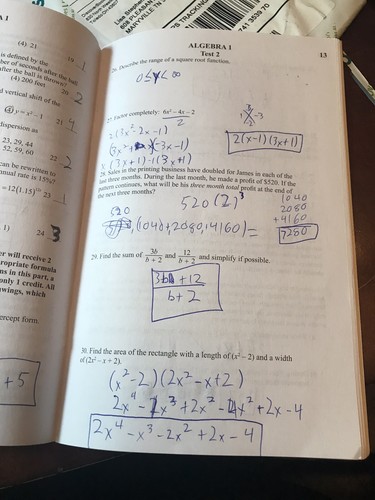 Lisa Stephen
608 PLEASAN
MARYVILLE TN
S TRACKING
ALGEBRA 1
Test 2
13
26. Describe the range of a square root function.
0≤y<∞
27. Factor completely: 6x² – 4x – 2
2
2(3x²-2x-1)
(3x²+x)(-3x-1)
x(3x+1)-1(3x+1)
2(x-1)(3x+1)
28. Sales in the printing business have doubled for James in each of the
last three months. During the last month, he made a profit of $520. If the
pattern continues, what will be his three month total profit at the end of
the next three months?
520
520(2)³
(1040+2080+4160)=
1040
2080
+4160
7280
29. Find the sum of 3b/b + 2 and 12/b + 2 and simplify if possible.
3b+12
b+2
30. Find the area of the rectangle with a length of (x² – 2) and a width
of (2x² – x + 2).
(x²-2)(2x²-x+2)
2x⁴-x³+2x²-4x²+2x-4
2x⁴-x³-2x²+2x-4
A 1
(4) 21
19
is defined by the
ber of seconds after the ball
fter the ball is thrown?
(4) 200 feet
20 2
d vertical shift of the
(4) y = x² – 1
21 4
dispersion as
23, 29, 44
52, 59, 60
22 2
can be rewritten to
nnual rate is 15%?
=12(1.15)
23 1
1)
24 3
er will receive 2
ropriate formula
ms in this part, a
only 1 credit. All
awings, which
ercept form.
+5